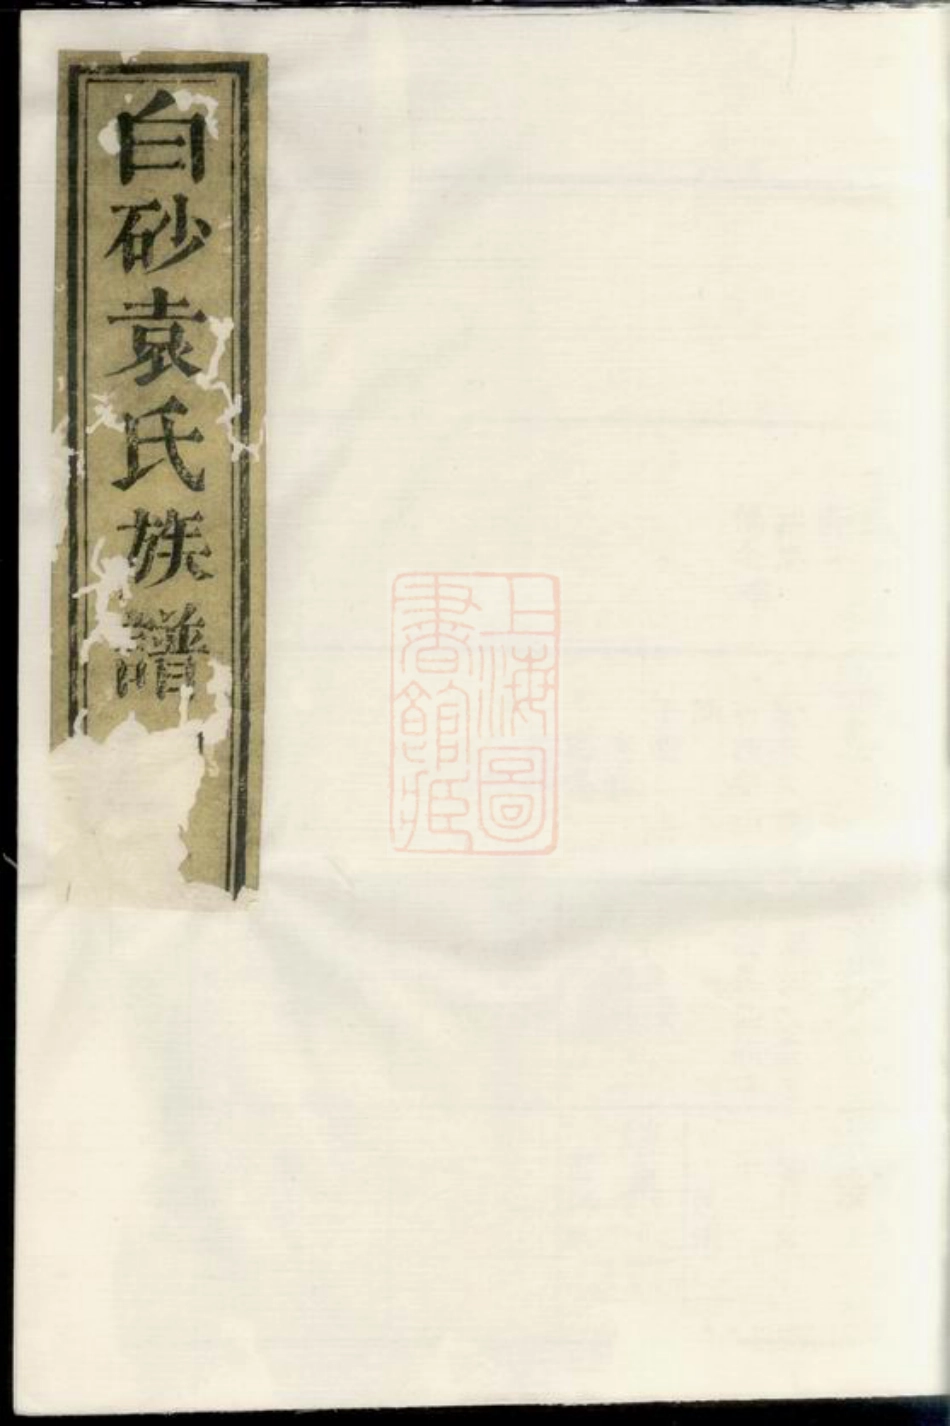 白砂袁氏族譜
上海圖
書館藏